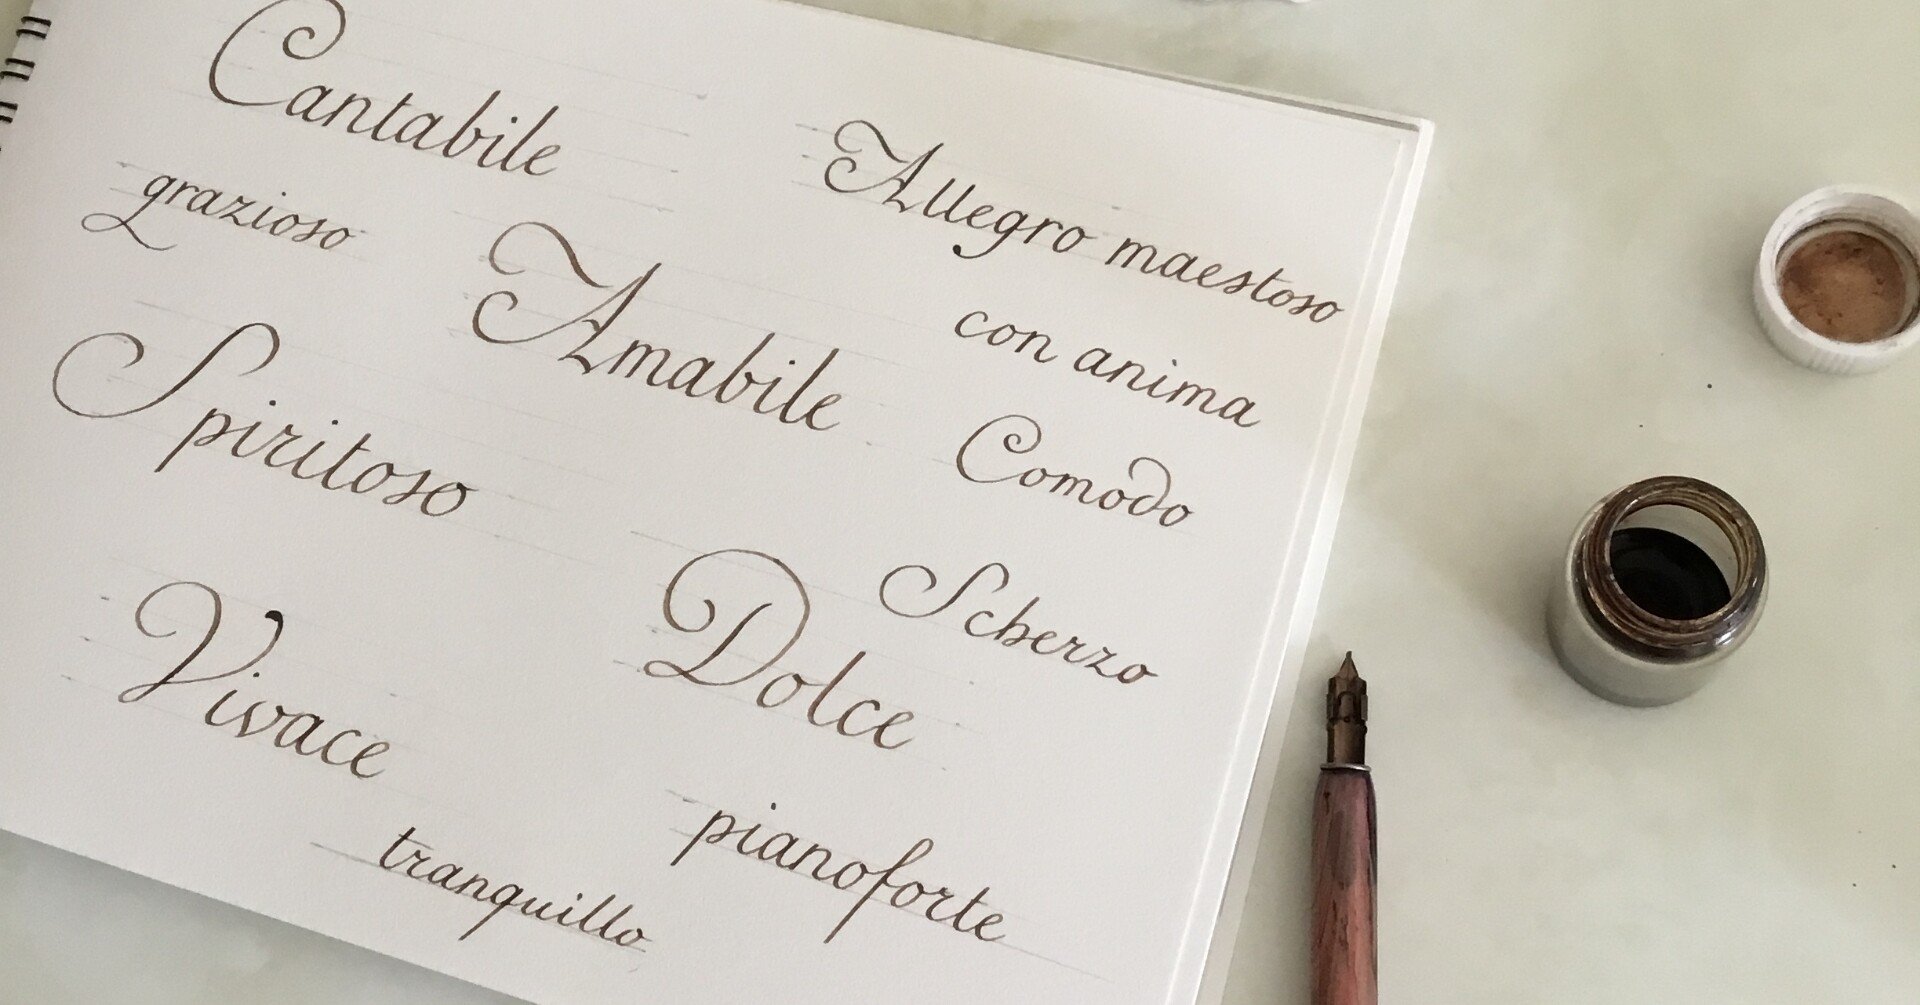 Cantabile
grazioso
Allegro maestoso
Amabile
con anima
Spiritoso
Comodo
Scherzo
Dolce
Vivace
pianoforte
tranquillo